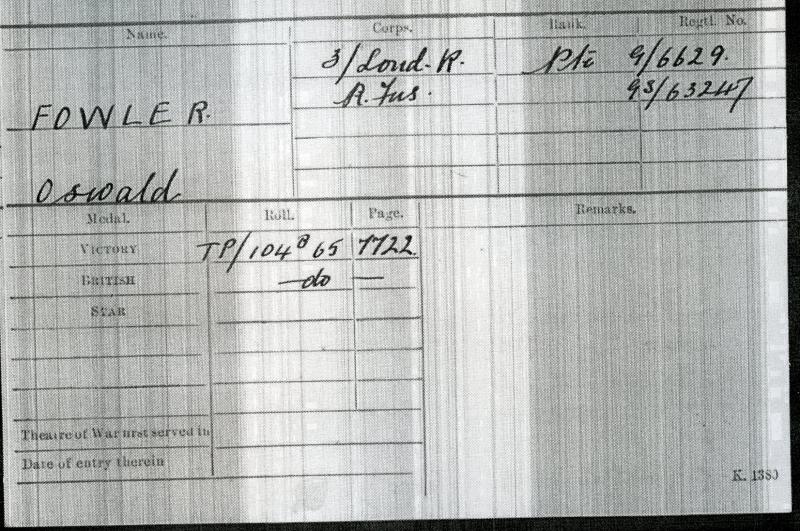 Name. Corps. Rank. Regtl. No.
3/Lond. R. Pte G/6629.
R. Fus. GS/63247
FOWLER.
Oswald
Medal. Roll. Page. Remarks.
VICTORY TP/104 B 65 7722.
BRITISH —do —
STAR
Theatre of War first served in
Date of entry therein
K. 1380